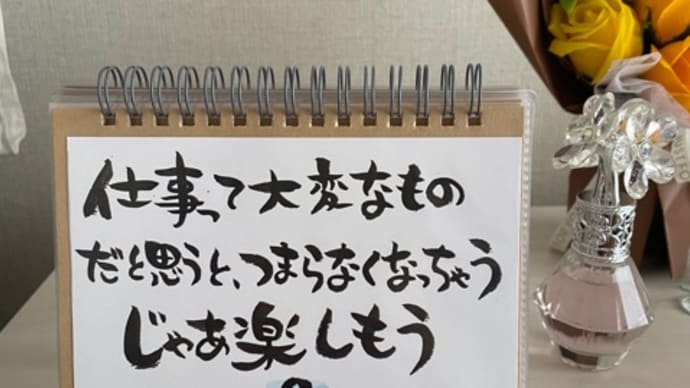 仕事って大変なもの
だと思うと、つまらなくなっちゃう
じゃあ楽しもう